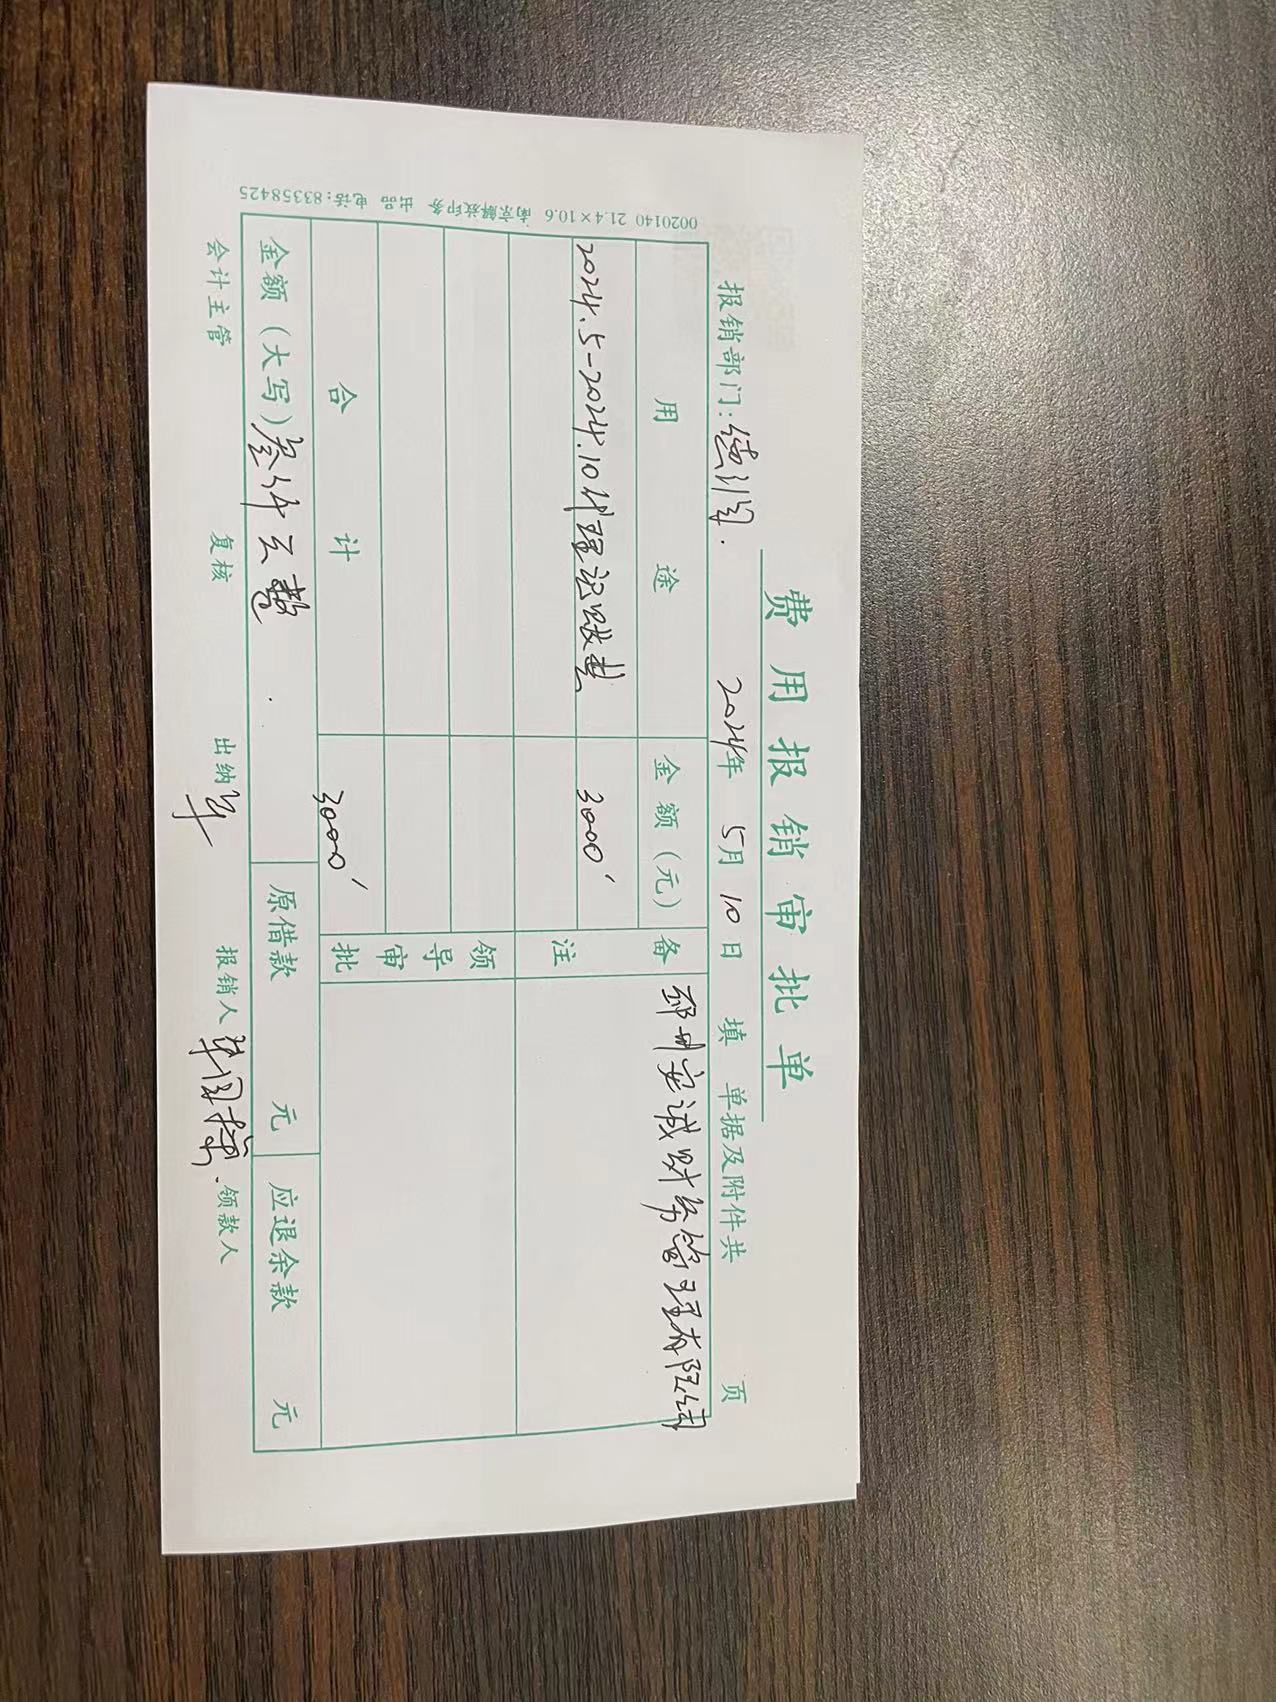 费用报销审批单
报销部门：德润 2024年 5月 10日 填 单据及附件共 页
用途 金额（元） 备注 邳州宏诚财务管理有限公司
2024.5-2024.10代理记账费 3000
领导审批
合计 3000
金额（大写）叁仟元整 原借款 元 应退余款 元
会计主管 复核 出纳 报销人 领款人
0020140 21.4×10.6 南京解放印务 出品 电话：83358425